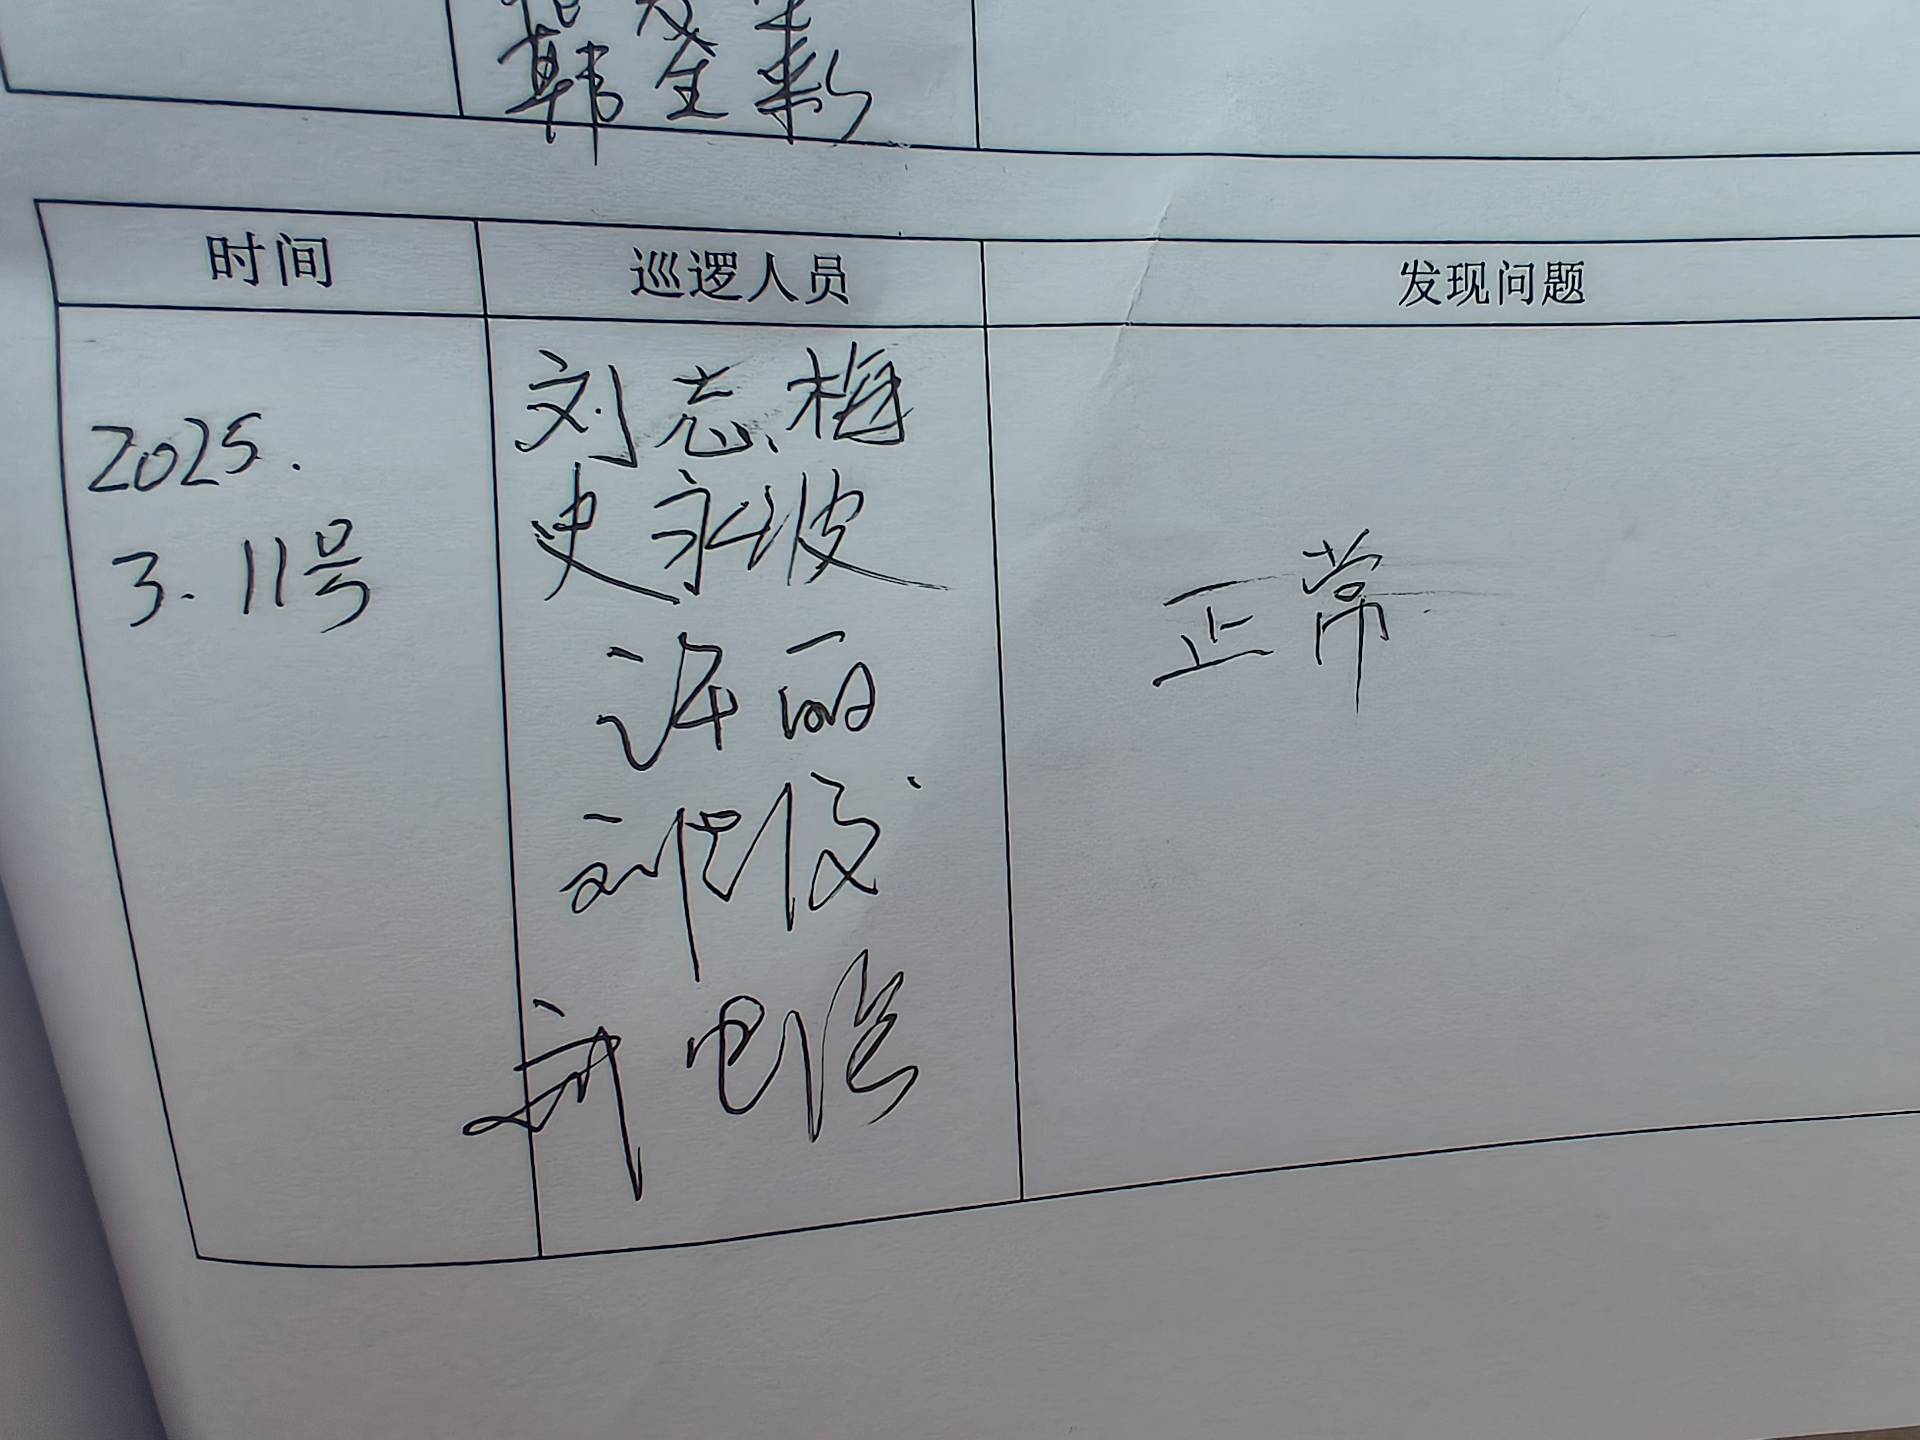 韩全彩
时间 巡逻人员 发现问题
2025.
3.11号
刘志梅
史永波
许丽
刘
刘
正常